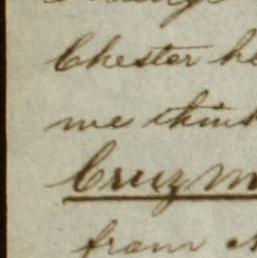 Chester he
me think
Cruzm
from